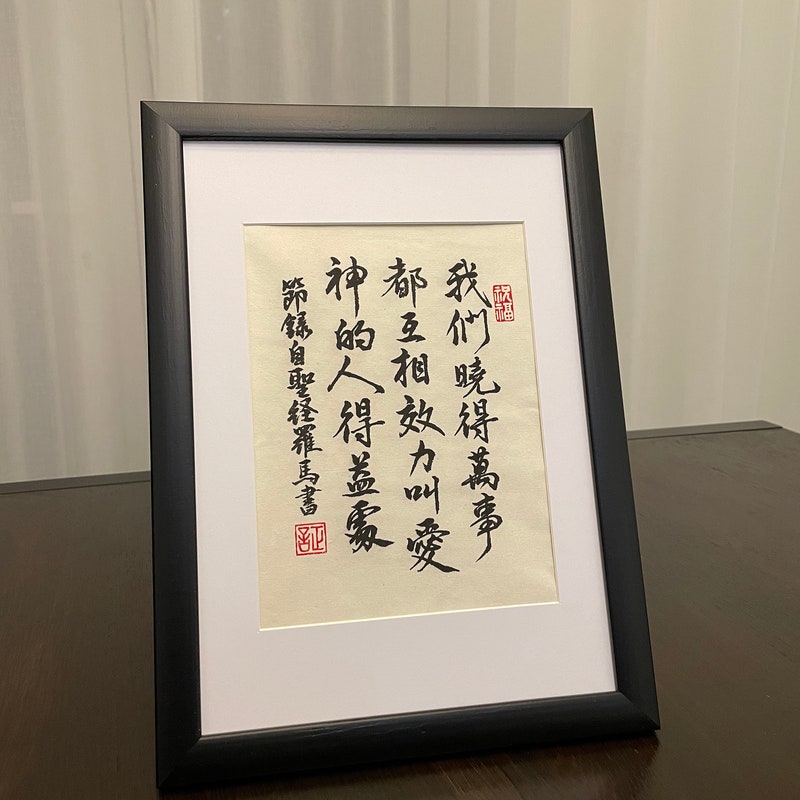 祝福
我們曉得萬事
都互相效力叫愛
神的人得益處
節錄自聖經羅馬書